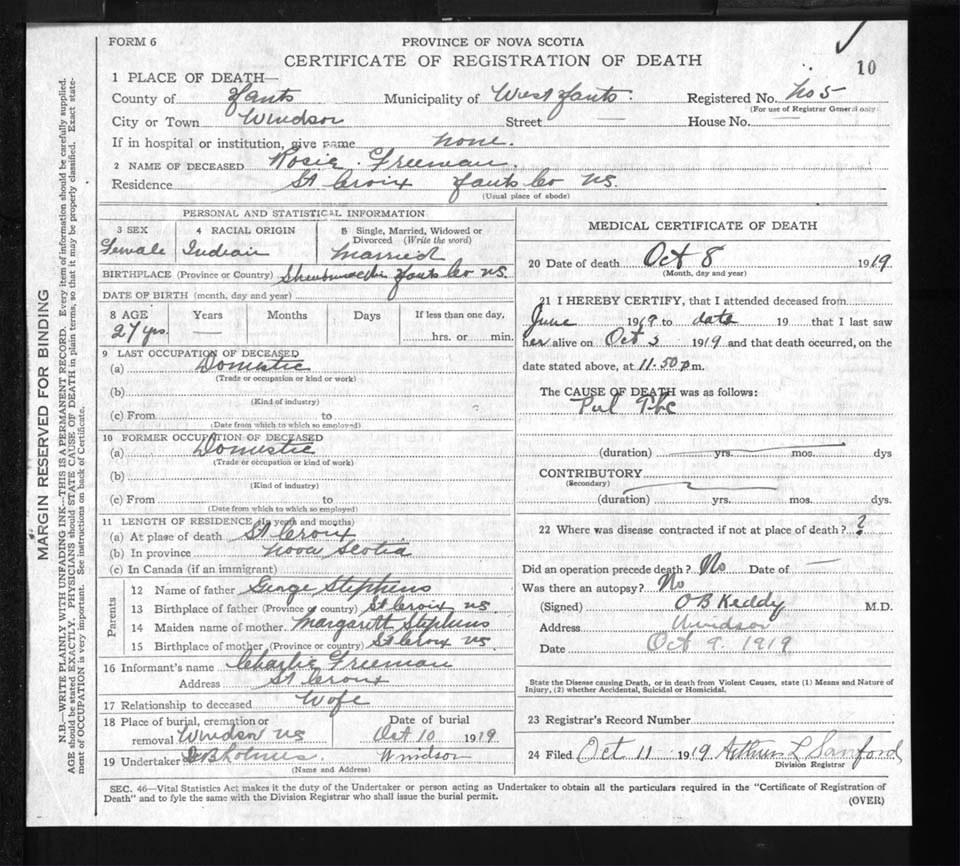 FORM 6
PROVINCE OF NOVA SCOTIA
CERTIFICATE OF REGISTRATION OF DEATH
10
1 PLACE OF DEATH—
County of Hants Municipality of West Hants: Registered No. No 5
(For use of Registrar General only)
City or Town Windsor Street — House No. —
If in hospital or institution, give name none.
2 NAME OF DECEASED Rosie Freeman.
Residence St Croix Hants Co NS.
(Usual place of abode)
PERSONAL AND STATISTICAL INFORMATION
3 SEX 4 RACIAL ORIGIN 5 Single, Married, Widowed or Divorced (Write the word)
Female Indian Married
BIRTHPLACE (Province or Country) Hants Co NS.
DATE OF BIRTH (month, day and year)
8 AGE Years Months Days If less than one day,
27 yrs. — hrs. or min.
9 LAST OCCUPATION OF DECEASED
(a) Domestic
(Trade or occupation or kind or work)
(b)
(Kind of industry)
(c) From to
(Date from which to which so employed)
10 FORMER OCCUPATION OF DECEASED
(a) Domestic
(Trade or occupation or kind of work)
(b)
(Kind of industry)
(c) From to
(Date from which to which so employed)
11 LENGTH OF RESIDENCE (In years and months)
(a) At place of death St Croix
(b) In province Nova Scotia
(c) In Canada (if an immigrant)
Parents
12 Name of father George Stephens
13 Birthplace of father (Province or country) St Croix NS
14 Maiden name of mother Margarett Stephens
15 Birthplace of mother (Province or country) St Croix NS.
16 Informant's name Charlie Freeman
Address St Croix
17 Relationship to deceased Wofe
18 Place of burial, cremation or Date of burial
removal Windsor NS Oct 10 1919
19 Undertaker Holmes. Windsor
(Name and Address)
MEDICAL CERTIFICATE OF DEATH
20 Date of death Oct 8 1919.
(Month, day and year)
21 I HEREBY CERTIFY, that I attended deceased from
June 1919 to date 19 that I last saw
her alive on Oct 3 1919 and that death occurred, on the
date stated above, at 11.50 p.m.
The CAUSE OF DEATH was as follows:
Pul Tbc
(duration) yrs. mos. dys
CONTRIBUTORY
(Secondary)
(duration) yrs. mos. dys.
22 Where was disease contracted if not at place of death? ?
Did an operation precede death? No Date of —
Was there an autopsy? No
(Signed) O B Keddy M.D.
Address Windsor
Date Oct 9. 1919
State the Disease causing Death, or in death from Violent Causes, state (1) Means and Nature of
Injury, (2) whether Accidental, Suicidal or Homicidal.
23 Registrar's Record Number
24 Filed Oct 11 1919 Arthur L Sanford
Division Registrar
SEC. 46—Vital Statistics Act makes it the duty of the Undertaker or person acting as Undertaker to obtain all the particulars required in the "Certificate of Registration of
Death" and to fyle the same with the Division Registrar who shall issue the burial permit.
(OVER)
MARGIN RESERVED FOR BINDING
N.B.—WRITE PLAINLY WITH UNFADING INK—THIS IS A PERMANENT RECORD. Every item of information should be carefully supplied.
AGE should be stated EXACTLY. PHYSICIANS should STATE CAUSE OF DEATH in plain terms, so that it may be properly classified. Exact state-
ment of OCCUPATION is very important. See instructions on back of Certificate.